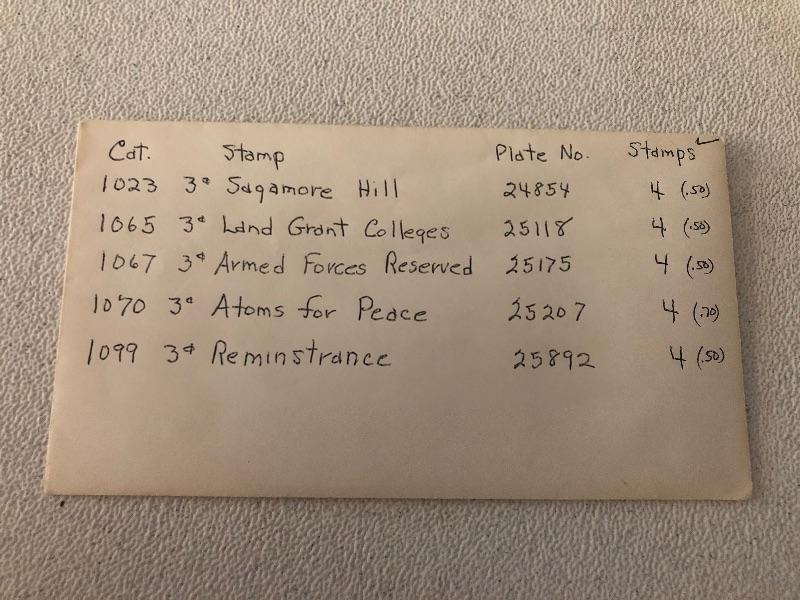 Cat. Stamp Plate No. Stamps ✓
1023 3¢ Sagamore Hill 24854 4 (.50)
1065 3¢ Land Grant Colleges 25118 4 (.50)
1067 3¢ Armed Forces Reserved 25175 4 (.50)
1070 3¢ Atoms for Peace 25207 4 (.70)
1099 3¢ Reminstrance 25892 4 (.50)